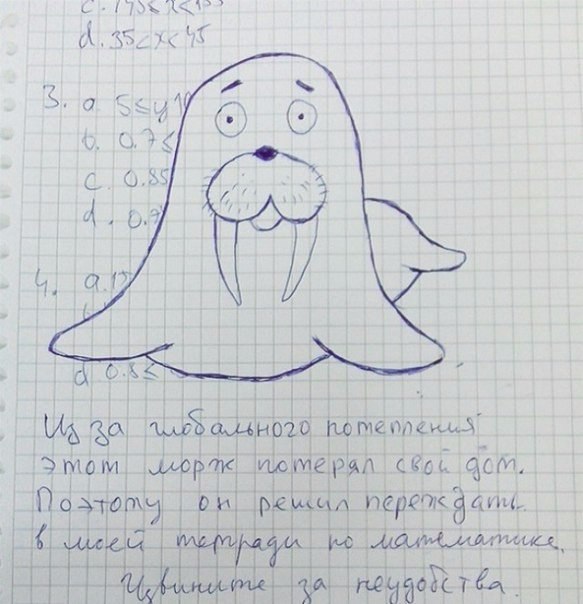 c. 145≤x≤155
d. 35<x<45
3. a. 5≤y
b. 0.7≤
c. 0.85
d. 0.
4. a.
d 0.8≤
Из за глобального потепления
этот морж потерял свой дом.
Поэтому он решил переждать
в моей тетради по математике.
Извините за неудобства.